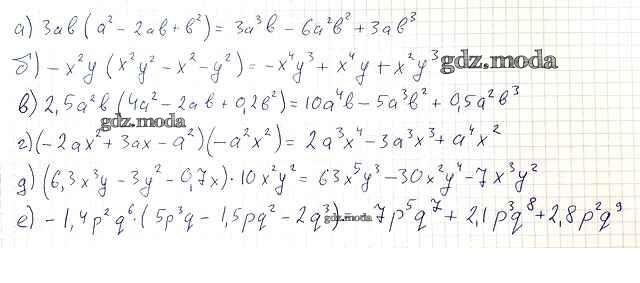 а) 3ab (a² - 2ab + b²) = 3a³b - 6a²b² + 3ab³
б) - x²y (x²y² - x² - y²) = -x⁴y³ + x⁴y + x²y³ gdz.moda
в) 2,5a²b (4a² - 2ab + 0,2b²) = 10a⁴b - 5a³b² + 0,5a²b³
gdz.moda
г) (-2ax² + 3ax - a²)(-a²x²) = 2a³x⁴ - 3a³x³ + a⁴x²
д) (6,3x³y - 3y² - 0,7x) · 10x²y² = 63x⁵y³ - 30x²y⁴ - 7x³y²
е) - 1,4p²q⁶ · (5p³q - 1,5pq² - 2q³) gdz.moda 7p⁵q⁷ + 2,1p³q⁸ + 2,8p²q⁹